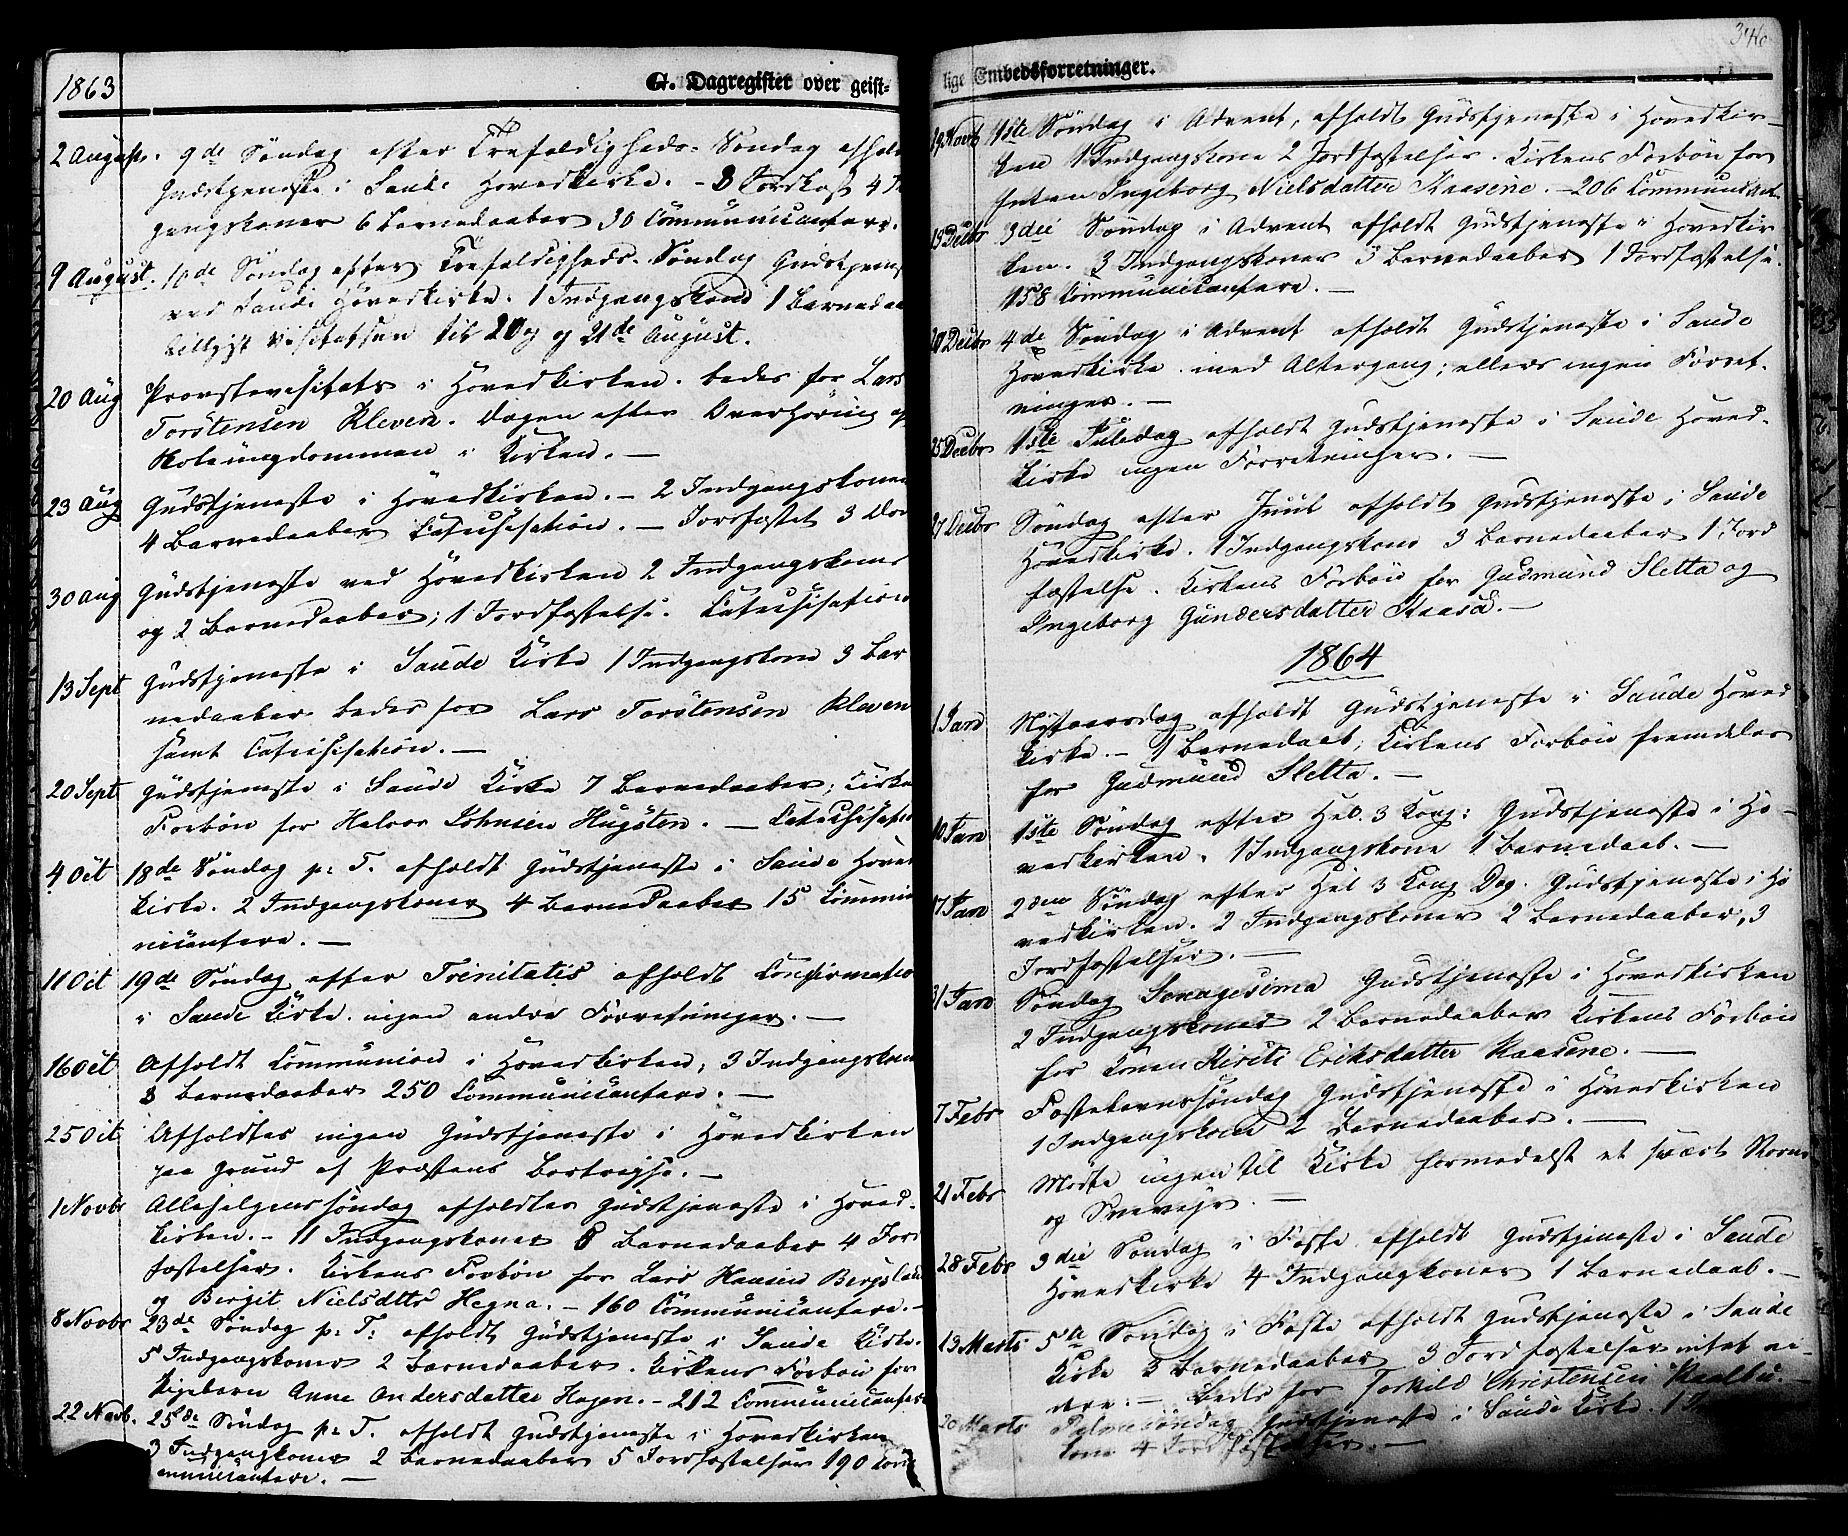 1863
G. Dagregister over geist-
2 August. 9de Søndag efter Trefoldigheds-Søndag afholdt
Gudstjeneste i Saude Hovedkirke. - 8 Jordkast 4 In
gangskoner 6 Barnedaaber 30 Communicantere.
9 August. 10de Søndag efter Trefoldigheds-Søndag Gudstjenes
ved Saude Hovedkirke. 1 Indgangskone 1 Barnedaa
Visitatsen til 20 og 21de August.
20 Aug Provstevisitats i Hovedkirken. bedes for Lars
Torstensen Kleven. Dagen efter Overhøring af
Ungdommen i Kirken. —
23 Aug Gudstjeneste i Hovedkirken. - 2 Indgangskoner
4 Barnedaaber Catechisation. — Jordfæstet 3
30 Aug Gudstjeneste ved Hovedkirken 2 Indgangskoner
og 2 Barnedaaber; 1 Jordfæstelse. Catechisation
13 Sept Gudstjeneste i Saude Kirke 1 Indgangskone 3 Bar
nedaaber bedes for Lars Torstensen Kleven
samt Catechisation. —
20 Sept Gudstjeneste i Saude Kirke 7 Barnedaaber; Kirkens
Forbøn for Halvor Johnsen Hugsten. — Catechisation
4 Oct 18de Søndag p: T. afholdt Gudstjeneste i Saude Hoved
kirke. 2 Indgangskoner 4 Barnedaaber 15 Commu
nicantere. —
11 Oct 19de Søndag efter Trinitatis afholdt Confirmation
i Saude Kirke. ingen andre Forretninger. —
16 Oct Afholdt Communion i Hovedkirken; 3 Indgangskoner
3 Barnedaaber 250 Communicantere. —
25 Oct Afholdtes ingen Gudstjeneste i Hovedkirken
paa Grund af Præstens Bortrejse. —
1 Novbr Allehelgenssøndag afholdtes Gudstjeneste i Hoved-
kirken. - 11 Indgangskoner 8 Barnedaaber 4 Jord
fæstelser. Kirkens Forbøn for Lars Hansen Bergsland
og Bergit Nielsdttr Hegna. - 160 Communicantere. -
8 Novbr 23de Søndag p: T: afholdt Gudstjeneste i Saude Kirke.
5 Indgangskoner 2 Barnedaaber. Kirkens Forbøn for
Pigebarn Anne Andersdatter Hagen. - 212 Communicantere
22 Novb. 25de Søndag p: T. afholdt Gudstjeneste i Hovedkirken
3 Indgangskoner 2 Barnedaaber 5 Jordfæstelser 190 Com
municantere. —
346
lige Embedsforretninger.
29 Novb 1ste Søndag i Advent, afholdt Gudstjeneste i Hovedkir-
ken 1 Indgangskone 2 Jordfæstelser. Kirkens Forbøn for
Ingeborg Nielsdatter Kaasene. - 206 Communicant
13 Decbr 3die Søndag i Advent afholdt Gudstjeneste i Hovedkir
ken. 3 Indgangskoner 3 Barnedaaber 1 Jordfæstelse.
158 Communicantere. —
20 Decbr 4de Søndag i Advent afholdt Gudstjeneste i Saude
Hovedkirke med Altergang; ellers ingen Forret-
ninger. —
25 Decbr 1ste Juledag afholdt Gudstjeneste i Saude Hoved-
kirke ingen Forretninger. —
27 Decbr Søndag efter Juul afholdt Gudstjeneste i Saude
Hovedkirke. 1 Indgangskone 3 Barnedaaber 1 Jord
fæstelse. Kirkens Forbøn for Gudmund Sletta og
Ingeborg Gundersdatter Kaasa. —
1864
1 Jan Nytaarsdag afholdt Gudstjeneste i Saude Hoved
kirke. - 1 Barnedaab; Kirkens Forbøn fremdeles
for Gudmund Sletta. —
10 Jan 1ste Søndag efter Hel. 3 Kong: Gudstjeneste i Ho-
vedkirken. 1 Indgangskone 1 Barnedaab. —
17 Jan 2den Søndag efter Hel 3 Kong Dag. Gudstjeneste i Ho
vedkirken. 2 Indgangskoner 2 Barnedaaber, 3
Jordfæstelser. —
31 Jan Søndag Sexagesima Gudstjeneste i Hovedkirken
2 Indgangskoner 2 Barnedaaber Kirkens Forbøn
for Konen Kirsti Eriksdatter Kaasene. —
7 Febr Fastelavnssøndag Gudstjeneste i Hovedkirken
1 Indgangskone 2 Barnedaaber. —
21 Febr Mødte ingen til Kirke formedelst et svært Storm
og Sneveir. —
28 Febr 3die Søndag i Faste afholdt Gudstjeneste i Saude
Hovedkirke 4 Indgangskoner 1 Barnedaab. —
13 Marts 5te Søndag i Faste afholdt Gudstjeneste i Saude
Kirke 2 Barnedaaber 3 Jordfæstelser intet vi-
dere. — Bedes for Torkild Christensen
20 Marts Palmesøndag Gudstjeneste i Saude Kirke. 1
kone 4 Jordfæstelser. —